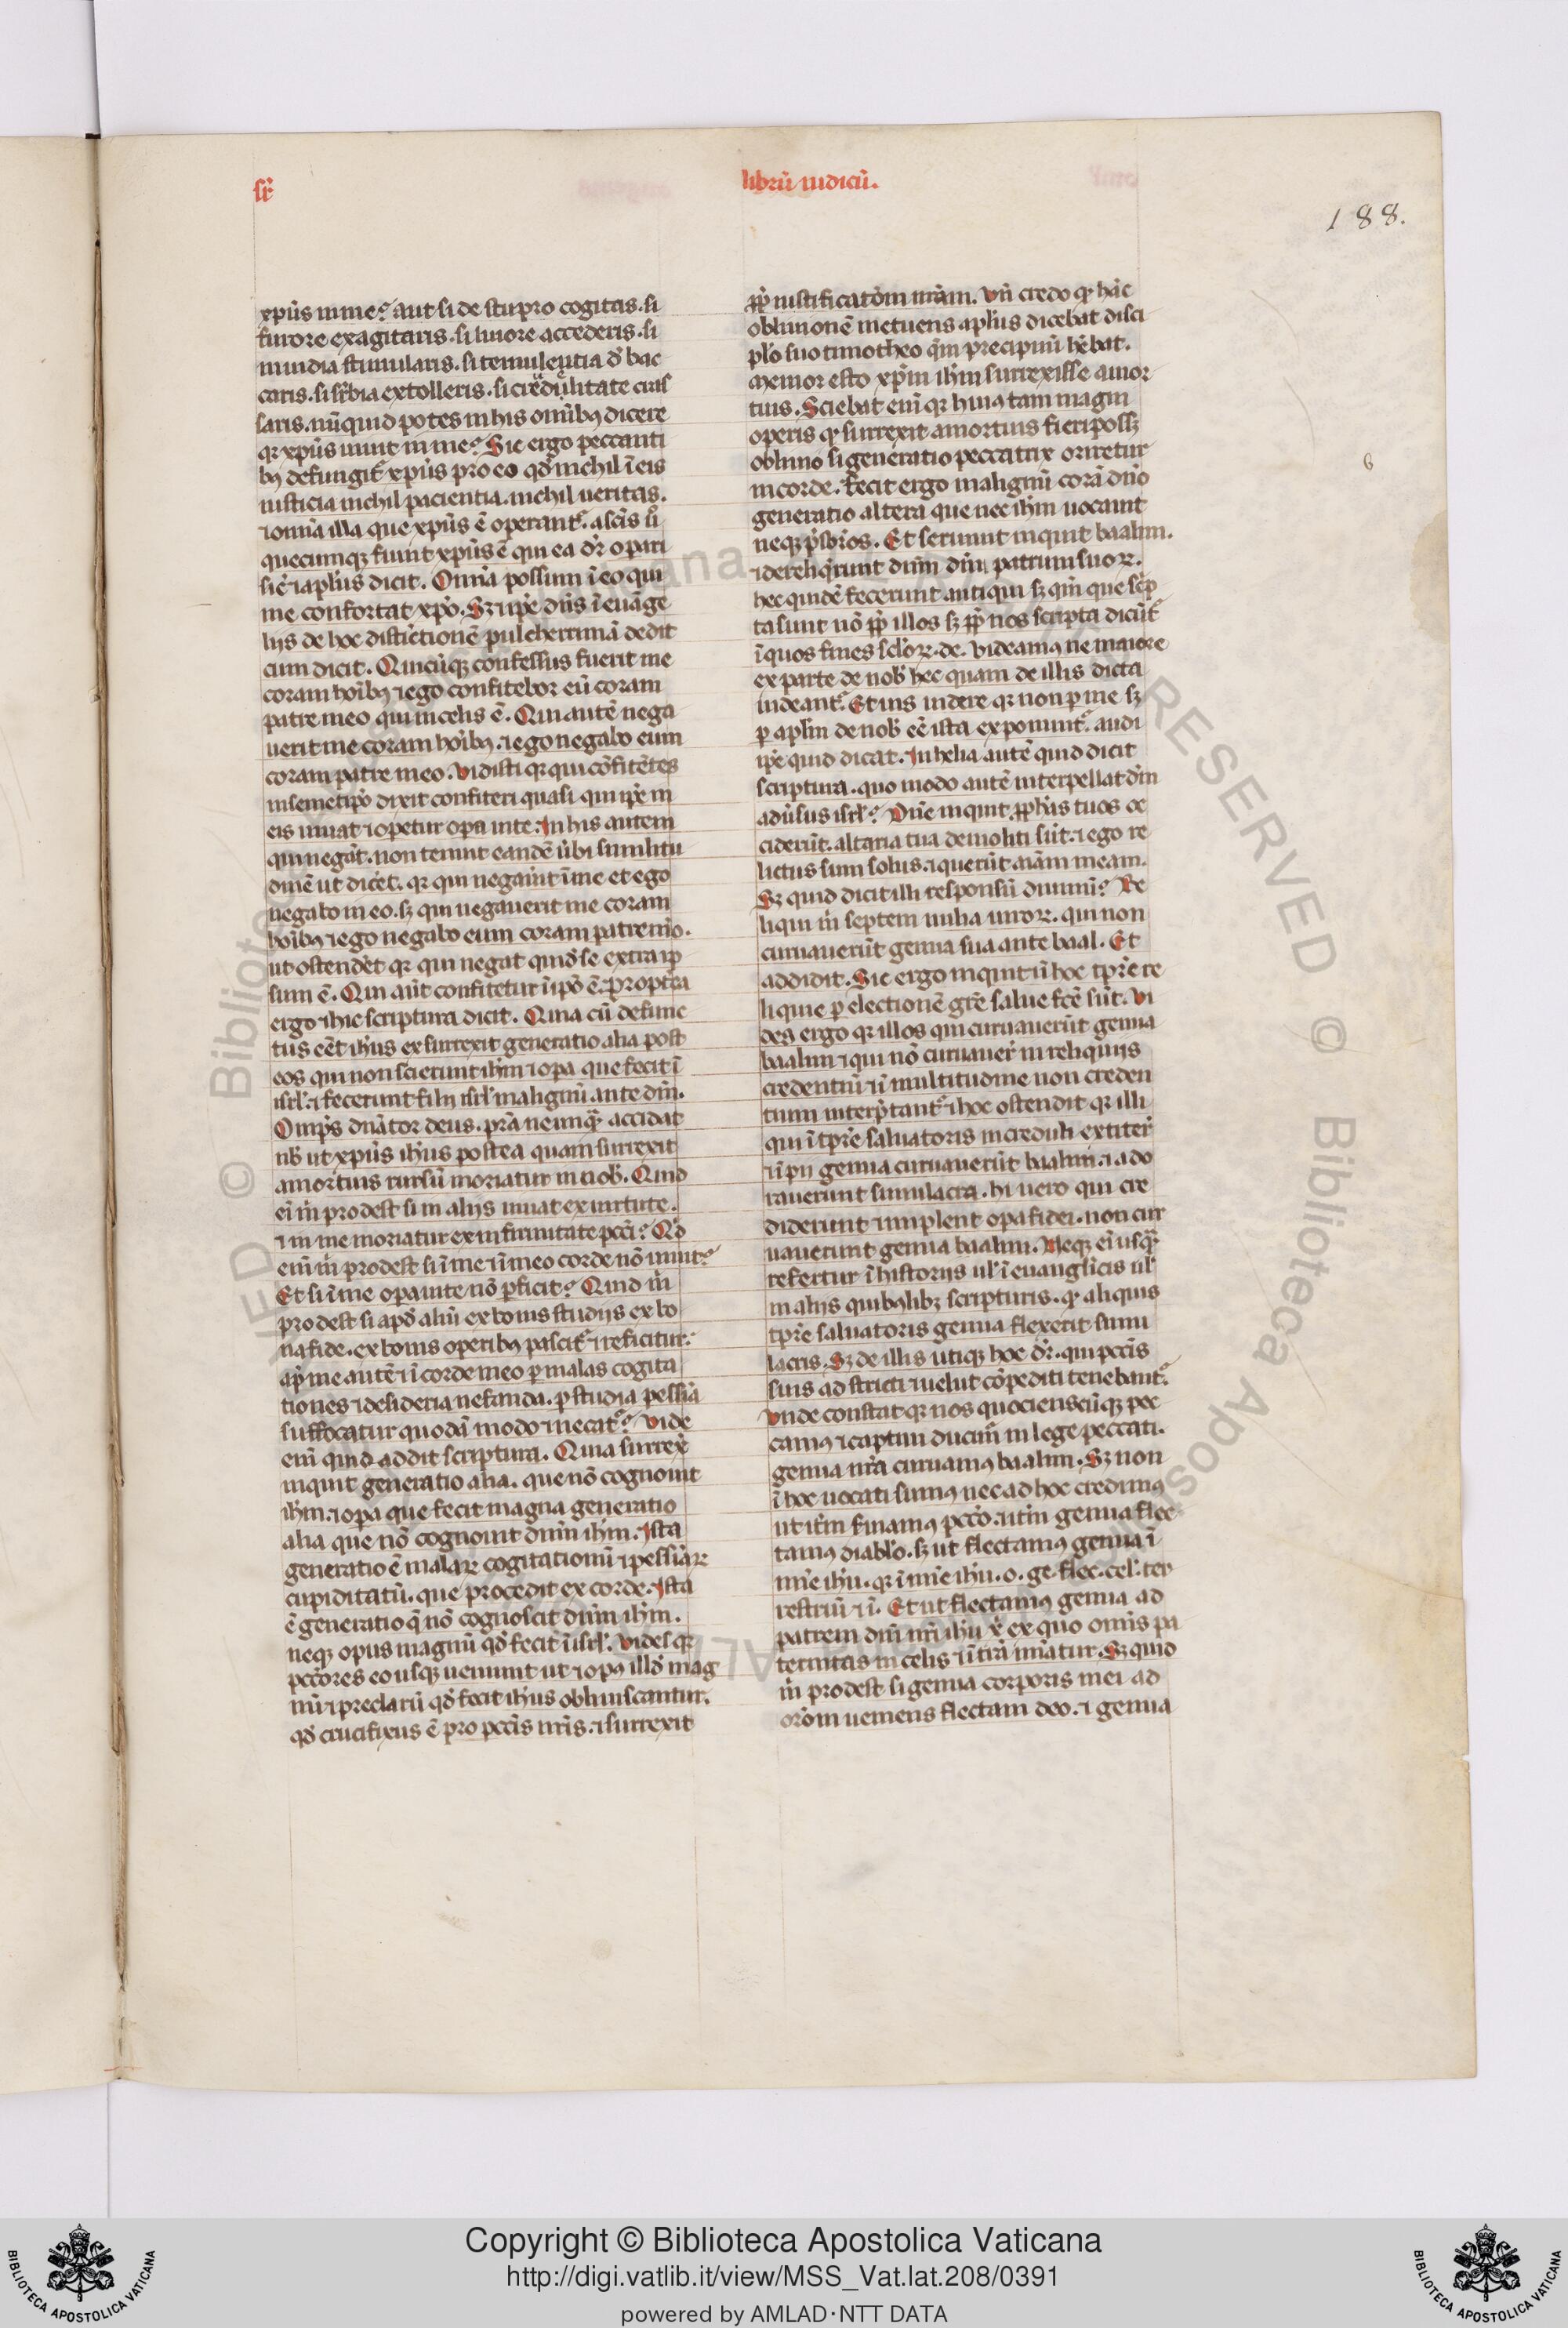 sr̄
librū iudicū.
188.
xp̄us in me? aut si de stupro cogitas. si
furore exagitaris. si liuore accederis. si
inuidia stimularis. si temulentia d̄ bac
caris. si sr̄bia extolleris. si crudelitate cras
saris. nūquid potes in his omībꝯ dicere
qꝛ xp̄us uiuit in me? Sic ergo peccanti
bꝯ defungit᷑ xp̄us pro eo qd̄ nichil ī eis
iusticia nichil paciencia. nichil ueritas.
⁊ omīa illa que xp̄us ē operant᷑. a sc̄is u̓o
quecumqꝫ fiunt xp̄us ē qui ea dr̄ opari
sic̄ ⁊ apl̄us dicit. Omīa possum ī eo qui
me confortat xp̄o. Sꝫ ⁊ ip̄e dn̄s ī euāge
liis de hoc distīctionē pulcherrimā dedit
cum dicit. Quicūqꝫ confessus fuerit me
coram hoībꝯ ⁊ ego confitebor eū coram
patre meo qui in celis ē. Qui autē nega
uerit me coram hoībꝯ. ⁊ ego negabo eum
coram patre meo. Vidisti qꝛ qui cōfitētes
in semetip̄o dixit confiteri quasi qui ip̄e in
eis uiuat ⁊ opetur opa in te. In his autem
qui negāt. non tenuit eandē ūbi similitu
dinē ut dicēt. qꝛ qui negauit ī me et ego
negabo in eo. sꝫ qui negauerit me coram
hoībꝯ ⁊ ego negabo eum coram patre m̄o.
ut ostendēt qꝛ qui negat quid̄ se extra ip̄
sum ē. Qui aūt confitetur ī ip̄o ē. propt̄ea
ergo ⁊ hic scriptura dicit. Quia cū defunc
tus eēt ih̄us exsurrexit generatio alia post
eos qui non scierunt ih̄m ⁊ opa que fecit ī
isrl̄. ⁊ fecerunt filii isrl̄ malignū ante dn̄m.
Omīps dn̄ator deus. prā ne umqꝫ accidat
nb̄ ut xp̄us ih̄us postea quam surrexit
a mortuis rursū moriatur in nob̄. Quid
ei m̄ prodest si in aliis uiuat ex uirtute.
⁊ in me moriatur ex infirmitate pcc̄i? Qd̄
eni m̄ prodest si ī me ⁊ ī meo corde nō uiuit?
Et si ī me opa uite nō p̄ficit? Quid m̄
prodest si apd̄ aliū ex bonis studiis ex bo
na fide. ex bonis operibꝯ pascit᷑ ⁊ reficitur.
ap̄ me autē ⁊ ī corde meo p malas cogita
tiones ⁊ desideria nefanda. p studia pessīa
suffocatur quodā modo ⁊ necat᷑? Vide
enī quid addit scriptura. Quia surrex̄
inquit generatio alia. que nō cognouit
ih̄m. ⁊ opa que fecit magna generatio
alia que nō cognouit dn̄m ih̄m. Ista
generatio ē malaꝝ cogitationū ⁊ pessīaꝝ
cupiditatū. que procedit ex corde. Ista
ē generatio q̄ nō cognoscit dn̄m ih̄m.
neqꝫ opus magnū qd̄ fecit ī isrl̄. Vides qꝛ
pcc̄ores eo usqꝫ ueniunt ut ⁊ opꝯ illd̄ mag
nū ⁊ preclarū qd̄ fecit ih̄us obliuiscantur.
qd̄ crucifixus ē pro pcc̄is nr̄is. ⁊ surrexit
ꝓp̄ iustificatōm nr̄am. Vn̄ credo qꝛ hāc
obliuionē metuens apl̄us dicebat disci
pl̄o suo timotheo q̄m precipuū hēbat.
Memor esto xp̄m ih̄m surrexisse a mor
tuis. Sciebat enī qꝛ huiꝯ tam magni
operis qꝛ surrexit a mortuis fieri possꝫ
obliuio si generatio peccatrix oriretur
in corde. Fecit ergo malignū corā dn̄o
generatio altera que nec ih̄m nouerunt
neqꝫ p̄sbr̄os. Et seruiunt inquit baalim.
⁊ dereliq̄runt dn̄m dm̄ patrum suoꝝ.
hec quidē fecerunt antiqui sꝫ qm̄ que sc̄p
ta sunt nō ꝓp̄ illos sꝫ ꝓp̄ nos scripta dicūt᷑
ī quos fines scl̄oꝝ. de. Videamꝯ ne maiore
ex parte de nob̄ hec quam de illis dicta
uideant᷑. Et uis uidere qꝛ non p me sꝫ
p apl̄m de nob̄ eē ista exponunt᷑. audi
ip̄e quid dicat. In helia autē quid dicit
scriptura. quo modo autē interpellat dm̄
adūsus isrl̄? Dn̄e inquit ꝓph̄as tuos oc
ciderūt. altaria tua demoliti sūt. ⁊ ego re
lictus sum solus. ⁊ querūt aīam meam.
Sꝫ quid dicit illi responsū diuinū? Re
liqui m̄ septem milia uiroꝝ. qui non
curuauerūt genua sua ante baal. Et
addidit. Sic ergo inquit ⁊ ī hoc tp̄re re
liquie p electionē gr̄e salue fc̄e sūt. Vi
des ergo qꝛ illos qui curuauerūt genua
baalim ⁊ qui nō curuauer̄ in reliquiis
credentiū ⁊ ī multitudine non creden
tium interp̄tant᷑ ⁊ hoc ostendit qꝛ illi
qui ī tp̄re saluatoris increduli extiter̄
⁊ īpii genua curuauerūt baalim. ⁊ ado
rauerunt simulacra. hi uero qui cre
diderunt ⁊ implent opa fidei. non cur
uauerunt genua baalim. Neqꝫ ei usqꝫ
refertur ī historiis ul̄ ī euangl̄icis ul̄
in aliis quibꝯlibꝫ scripturis. qꝛ aliquis
tp̄re saluatoris genua flexerit simu
lacris. Sꝫ de illis utiqꝫ hoc dr̄. qui pcc̄is
suis adstricti ⁊ uelut cōpediti tenebant᷑.
Vnde constat qꝛ nos quocienscūqꝫ pec
camꝯ ⁊ captiui ducim̄ in lege peccati.
genua nr̄a curuamꝯ baalim. Sꝫ non
ī hoc uocati sumꝯ nec ad hoc credimꝯ
ut itm̄ fiuamꝯ pcc̄o. ⁊ itm̄ genua flec
tamꝯ diabl̄o. sꝫ ut flectamꝯ genua ī
nn̄e ih̄u. qꝛ ī nn̄e ih̄u. o. ge. flec. cel̄. ter
restriū ⁊ ī. Et ut flectamꝯ genua ad
patrem dn̄i nr̄i ih̄u x̄ ex quo omīs pa
ternitas in celis ⁊ ī tr̄a nn̄atur. Sꝫ quid
m̄ prodest si genua corporis mei ad
orōm ueniens flectam deo. ⁊ genua
Copyright © Biblioteca Apostolica Vaticana
http://digi.vatlib.it/view/MSS_Vat.lat.208/0391
powered by AMLAD·NTT DATA
BIBLIOTECA APOSTOLICA VATICANA
BIBLIOTECA APOSTOLICA VATICANA